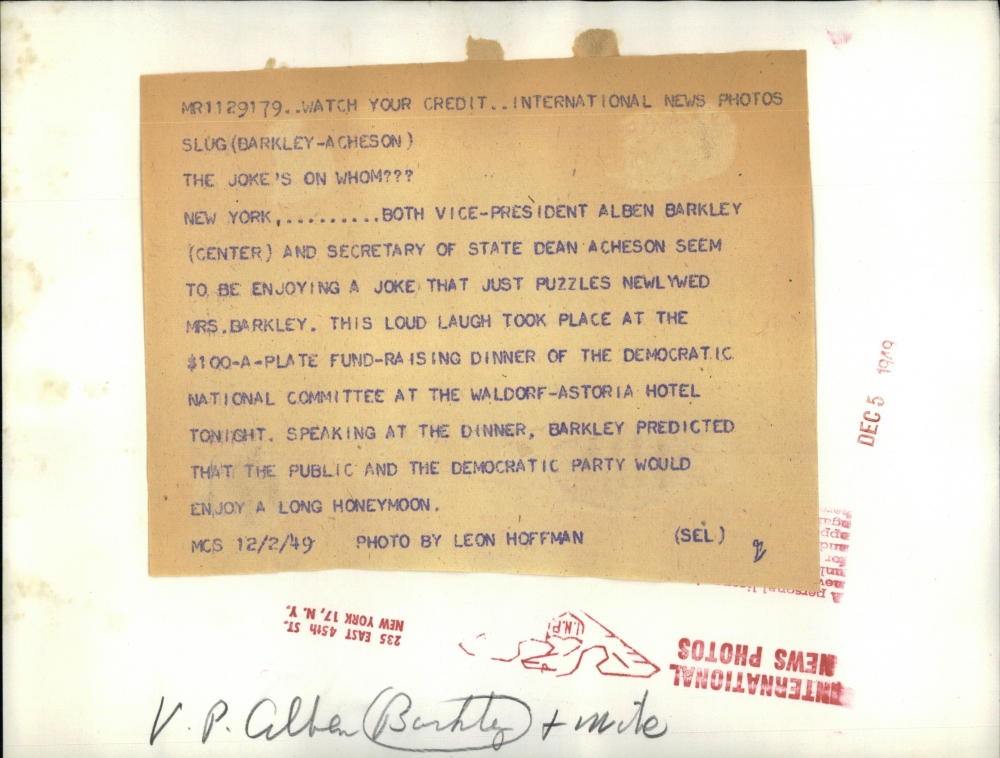 MR1129179..WATCH YOUR CREDIT..INTERNATIONAL NEWS PHOTOS
SLUG(BARKLEY-ACHESON)
THE JOKE'S ON WHOM???
NEW YORK,.........BOTH VICE-PRESIDENT ALBEN BARKLEY
(CENTER) AND SECRETARY OF STATE DEAN ACHESON SEEM
TO BE ENJOYING A JOKE THAT JUST PUZZLES NEWLYWED
MRS.BARKLEY. THIS LOUD LAUGH TOOK PLACE AT THE
$100-A-PLATE FUND-RAISING DINNER OF THE DEMOCRATIC
NATIONAL COMMITTEE AT THE WALDORF-ASTORIA HOTEL
TONIGHT. SPEAKING AT THE DINNER, BARKLEY PREDICTED
THAT THE PUBLIC AND THE DEMOCRATIC PARTY WOULD
ENJOY A LONG HONEYMOON.
MCS 12/2/49 PHOTO BY LEON HOFFMAN (SEL)
DEC 5 1949
A personal
235 EAST 45th ST.
NEW YORK 17, N. Y.
I.N.P.
INTERNATIONAL
NEWS PHOTOS
V. P. Alben Barkley +